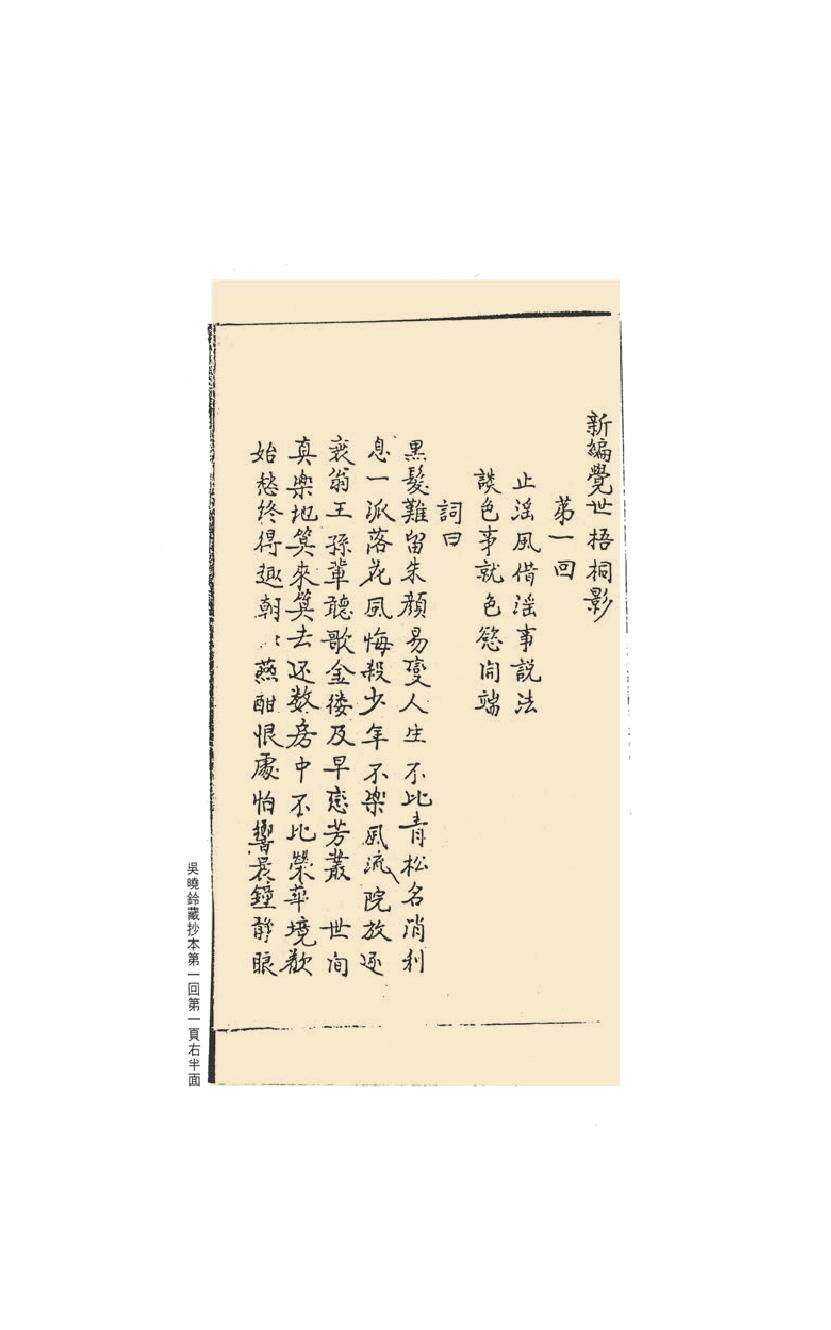 新編覺世梧桐影
第一回
止淫風借淫事說法
談色事就色慾開端
詞曰
黒髮難留朱顏易變人生不比青松名消利
息一派落花風悔殺少年不樂風流院放逐
衰翁王孫輩聽歌金縷及早戀芳叢　世间
真樂地筭來筭去还数房中不比榮華境歡
始愁終得趣朝〻燕酣恨處怕響晨鐘静眼
吳曉鈴藏抄本第一回第一頁右半面